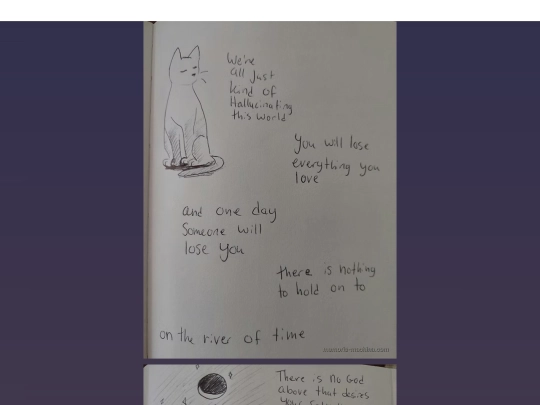 We're
all Just
kind of
Hallucinating
this world
You will lose
everything you
love
and one day
Someone will
lose you
there is nothing
to hold on to
on the river of time
There is no God
above that desires
your